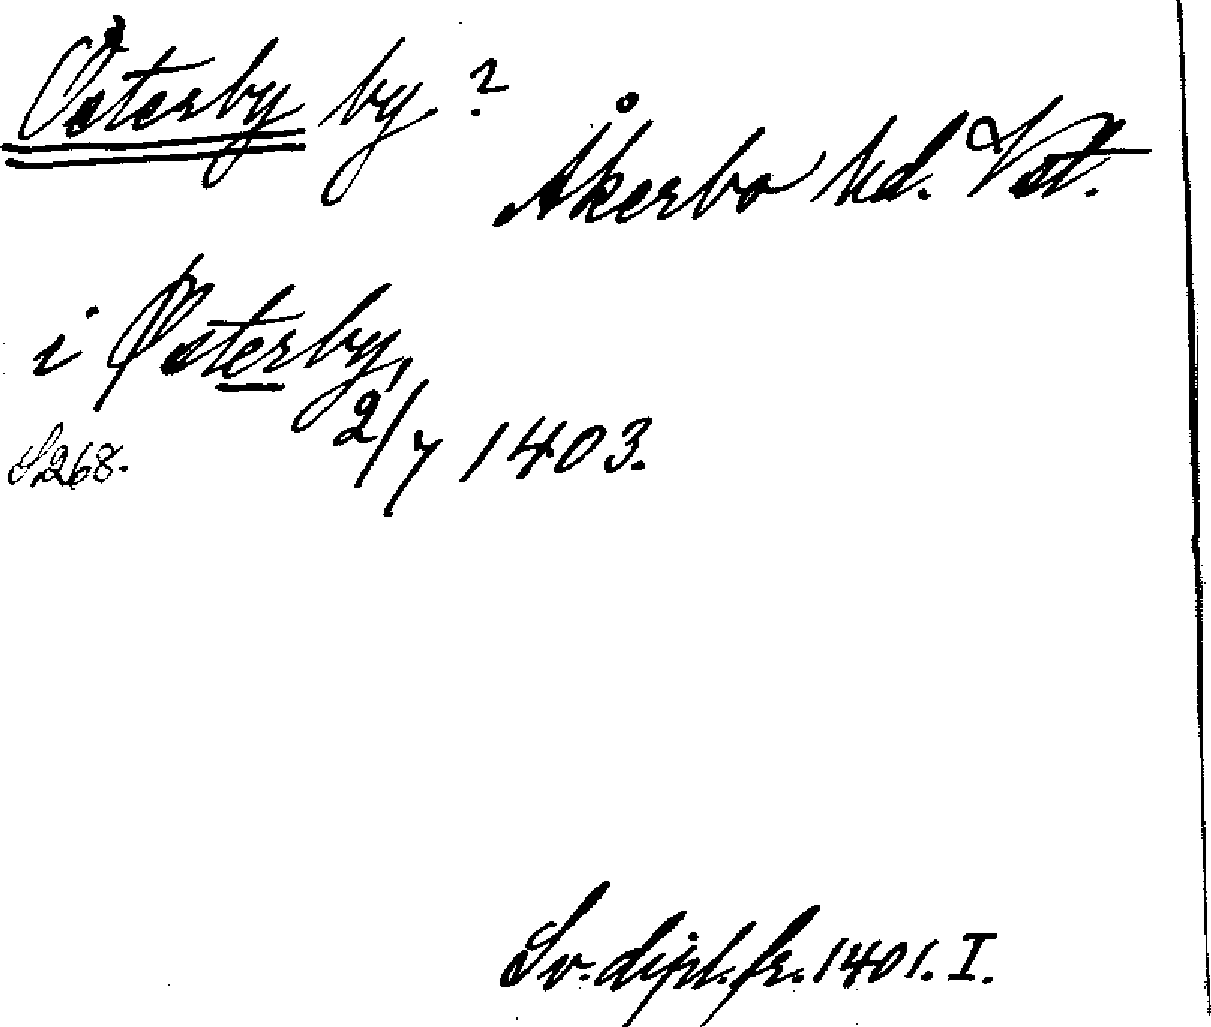 Österby by?
Åkerbo hd. Vstl.
i Østerby,
2/7 1403.
S. 268.
Sv. dipl. fr. 1401. I.